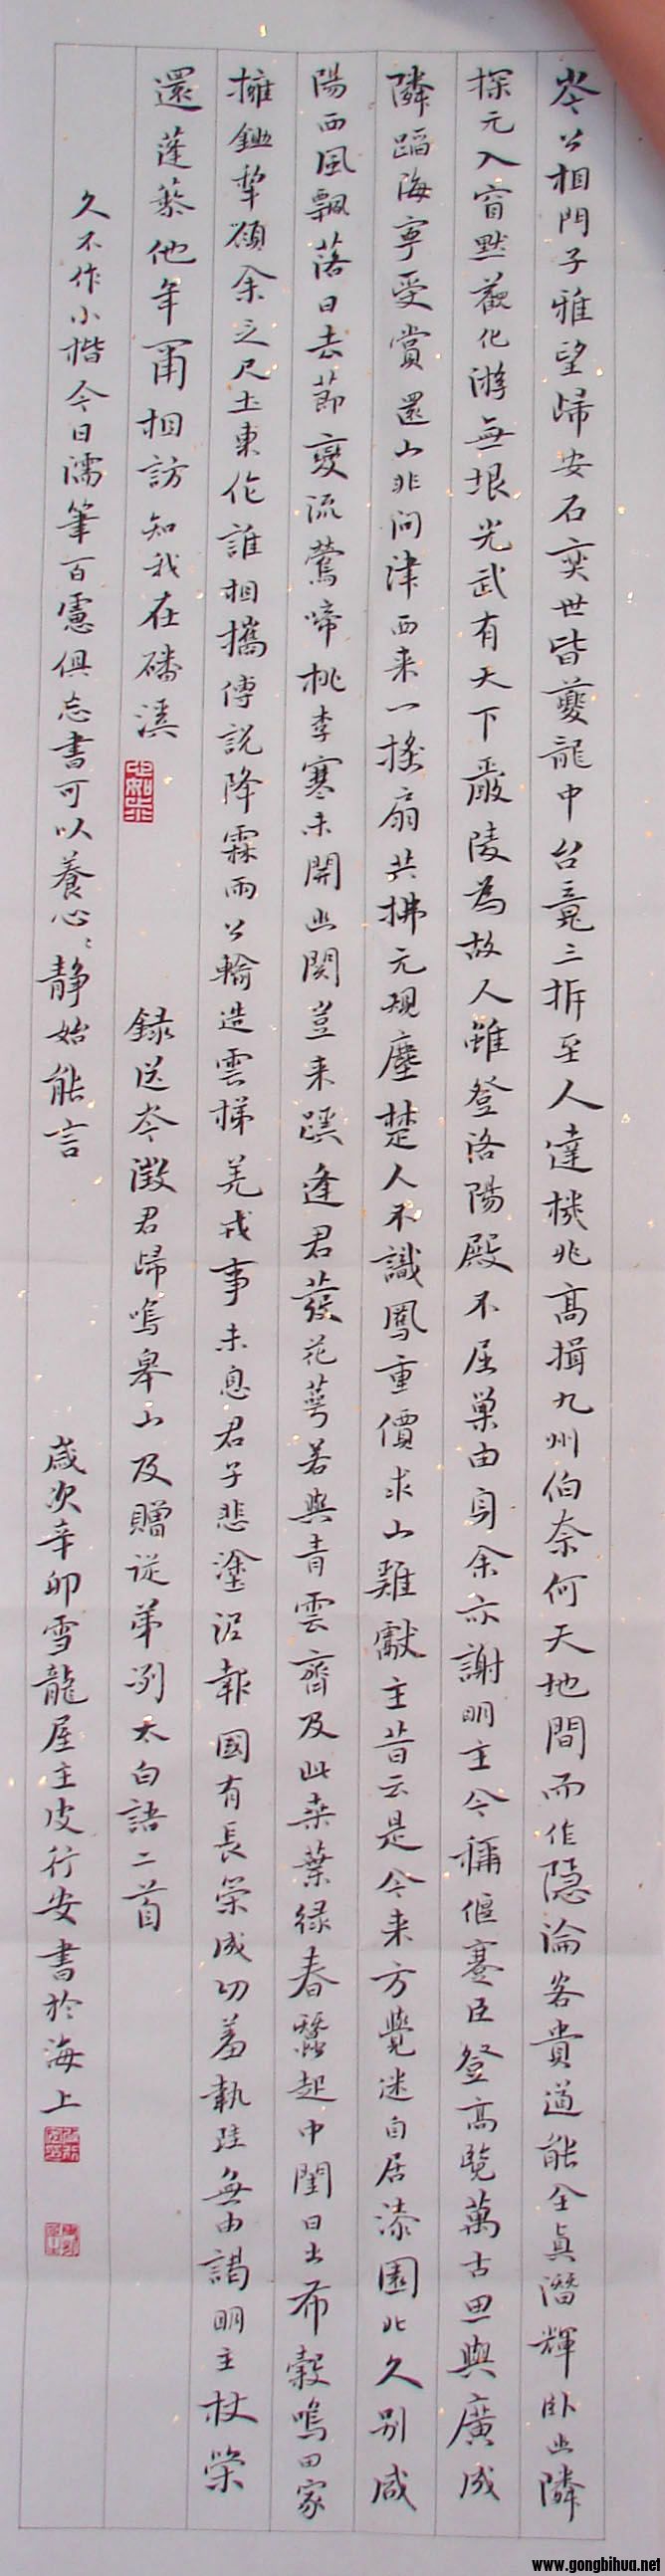 岑公相門子雅望歸安石奕世皆夔龍中台竟三拆至人達機兆高揖九州伯奈何天地間而作隱淪客貴道能全真潛輝臥幽隣
探元入窅默觀化游無垠光武有天下嚴陵為故人雖登洛陽殿不屈巢由身余亦謝明主今稱偃蹇臣登高覽萬古思與廣成
隣蹈海寧受賞還山非問津西来一搖扇共拂元規塵楚人不識鳳重價求山雞獻主昔云是今来方覺迷自居漆園北久別咸
陽西風飄落日去節變流鶯啼桃李寒未開幽関豈来蹊逢君發花萼若與青雲齊及此桑葉綠春蠶起中閨日出布穀鳴田家
擁鋤犂顧余乏尺土東作誰相攜傅說降霖雨公輸造雲梯羌戎事未息君子悲塗泥報國有長策成功羞執珪無由謁明主杖策
還蓬藜他年爾相訪知我在磻溪
録送岑徵君歸鳴皋山及贈從弟冽太白詩二首
久不作小楷今日濡筆百慮俱忘書可以養心心靜始能言
歲次辛卯雪龍屋主皮行安書於海上
www.gongbihua.net